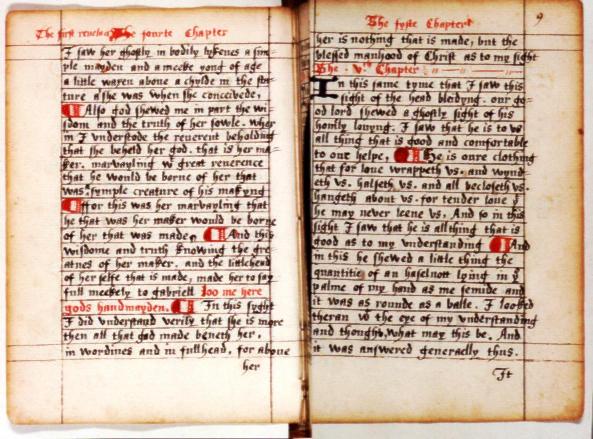 The first revelation The fourte Chapter
I saw her ghostly in bodily lykenes a sim=
ple mayden and a meeke yong of age
a little waxen aboue a chylde in the sta=
ture as she was when she conceivede,
Also god shewed me in part the wi=
sdom and the truth of her sowle. wher
in I vnderstode the reuerent beholding
that she beheld her god. that is her ma=
ker. marvayling wt great reuerence
that he would be borne of her that
was symple creature of his makyng
ffor this was her marvayling that
he that was her maker would be borne
of her that was made, And this
wisdome and truth knowing the gre=
atnes of her maker. and the littlehead
of her selfe that is made, made her to say
full meekely to gabriell loo me here
gods handmayden. In this syght
I did vnderstand verily that she is more
then all that god made beneth her,
in wordines and in fullhead, for aboue
her
The fyfte Chapter 9
her is nothing that is made, but the
blessed manhood of Christ as to my sight
The .vth. Chapter
In this same tyme that I saw this
sight of the head bleidyng. our go=
od lord shewed a ghostly sight of his
homly louyng. I saw that he is to vs
all thing that is good and comfortable
to our helpe, He is oure clothing
that for loue wrappeth vs. and wynd=
eth vs. halseth vs. and all becloseth vs.
hangeth about vs. for tender loue yt
he may never leeue vs. And so in this
sight I saw that he is all thing that is
good as to my vnderstanding And
in this he shewed a little thing the
quantitie of an haselnott lying in ye
palme of my hand as me semide and
it was as rounde as a balle. I looked
theran wt the eye of my vnderstanding
and thought, what may this be. And
it was answered generaelly thus.
It